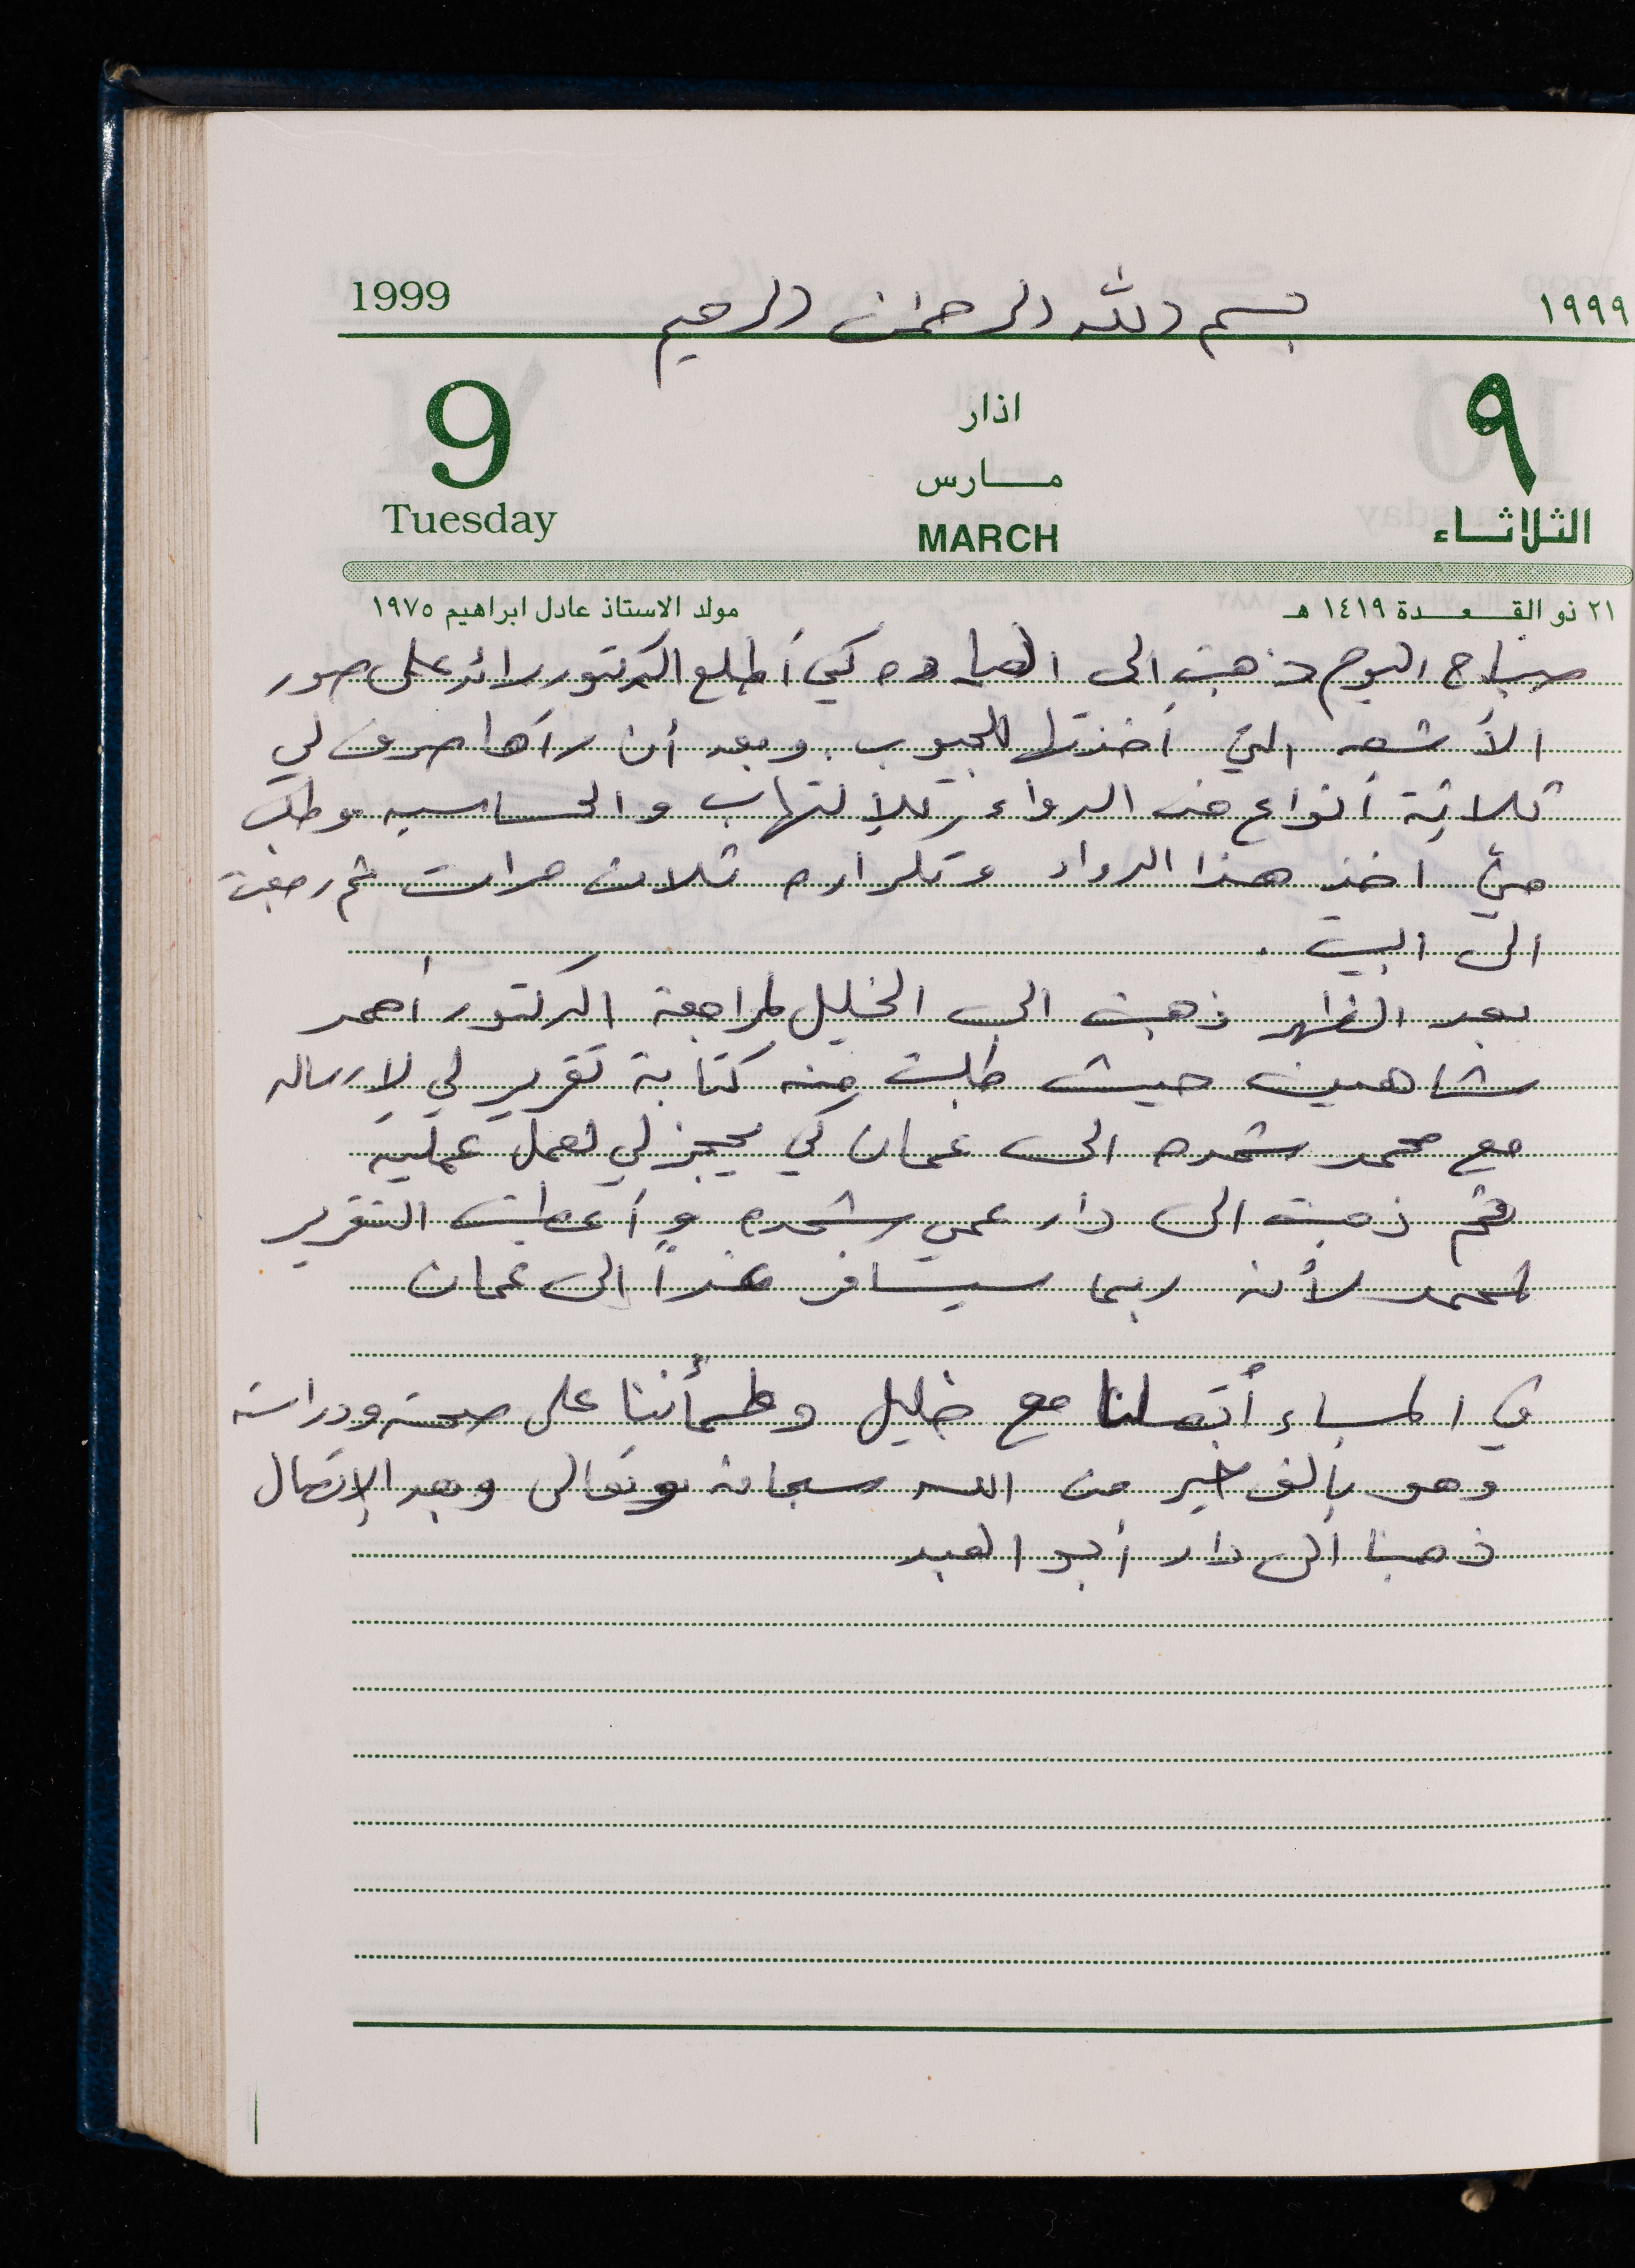 بسم الله الرحمن الرحيم
1999 ١٩٩٩
9 اذار ٩
مـارس
Tuesday MARCH الثلاثـاء
٢١ ذو القـعـدة ١٤١٩ هـ مولد الاستاذ عادل ابراهيم ١٩٧٥
صباح اليوم ذهبت الى العياده كي أطلع الدكتور رائد على صور
الأشعه التي أخذتها للجيوب. وبعد أن رآها صرف لي
ثلاثة أنواع من الدواء للإلتهاب والحساسيه وطلب
مني اخذ هذا الدواء وتكراره ثلاث مرات ثم رجعت
الى البيت.
بعد الظهر ذهبت الى الخليل لمراجعة الدكتور أحمد
شاهين حيث طلبت منه كتابة تقرير لي لإرساله
مع محمد شحده الى عمان كي يحجز لي لعمل عملية
ثم ذهبت الى دار عمي شحده وأعطيت التقرير
لمحمد لأنه ربما سيسافر غداً الى عمان
في المساء أتصلنا مع خليل وطمأننا على صحته ودراسته
وهو بألف خير من الله سبحانه وتعالى وبعد الإتصال
ذهبنا الى دار أبو العبد